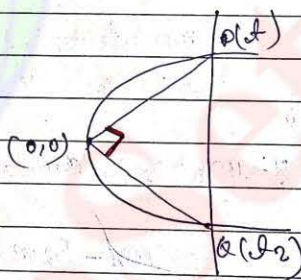 P(t)
(0,0)
Q(t2)